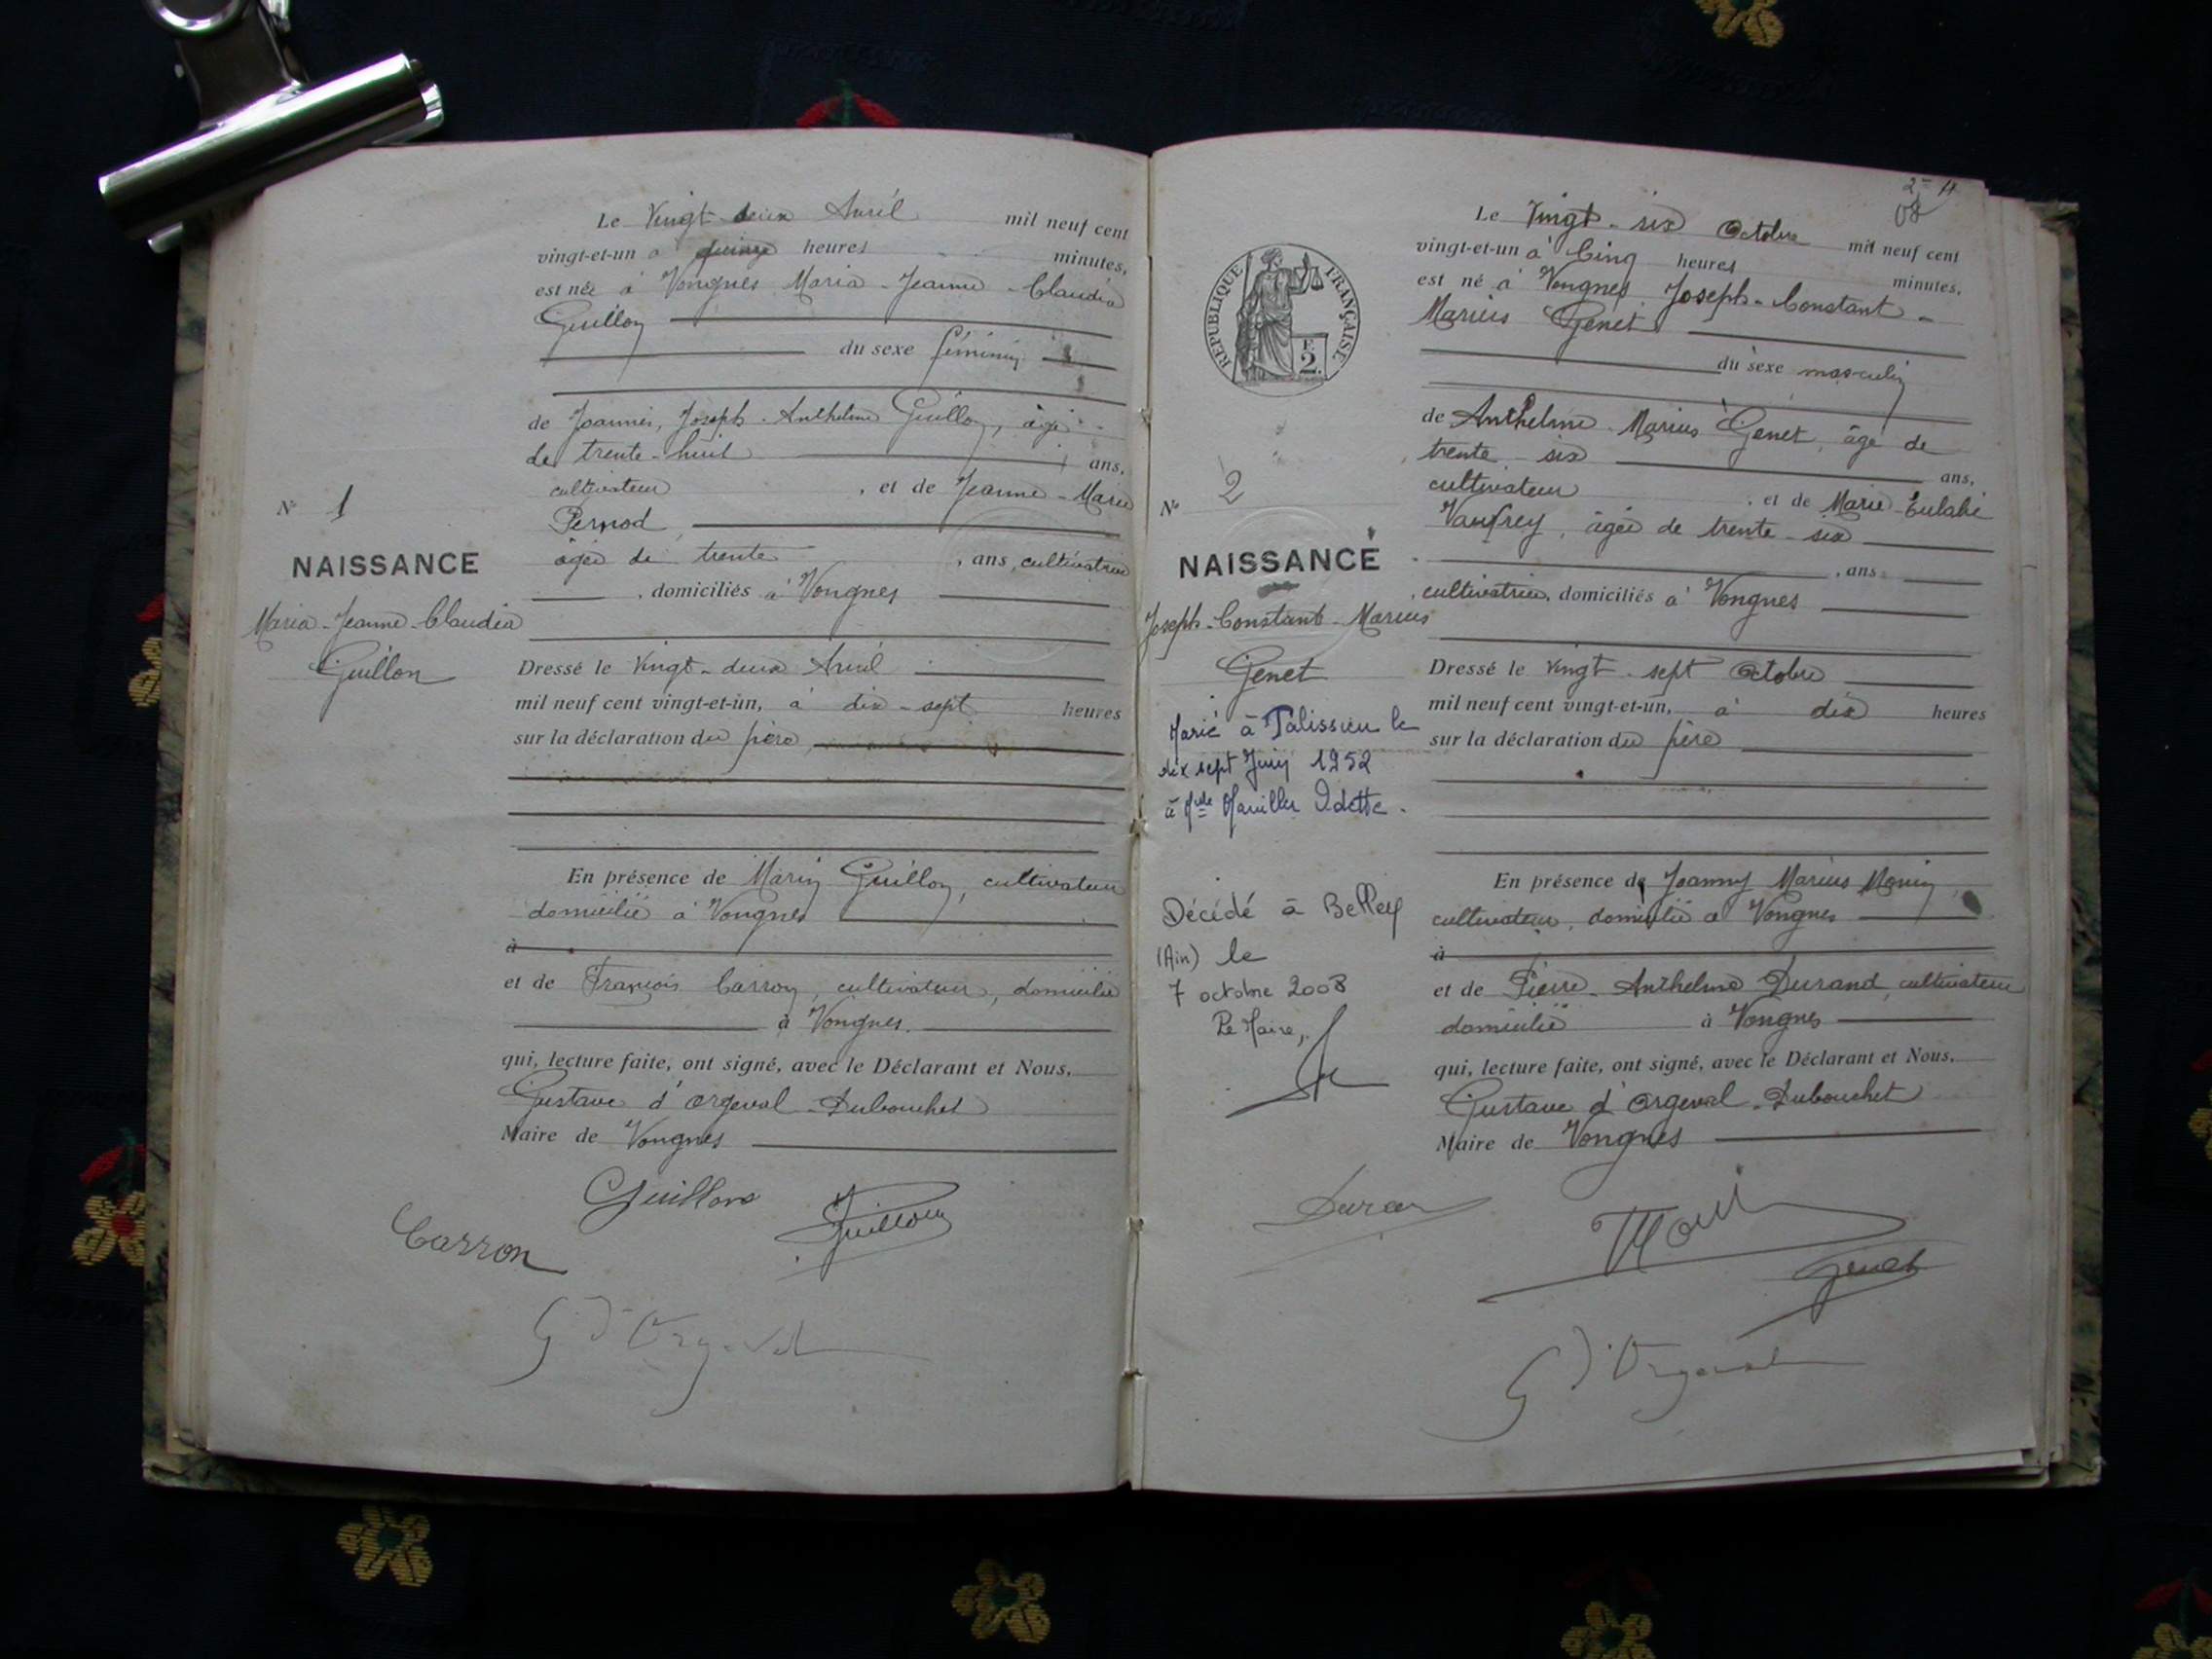 Le Vingt-deux Avril mil neuf cent
vingt-et-un à quinze heures minutes,
est née à Vongnes Maria-Jeanne-Claudia
Guillon
du sexe féminin
de Joannès, Joseph-Anthelme Guillon, âgé
de trente-huit ans,
cultivateur, et de Jeanne-Marie
Pernod,
âgée de trente, ans, cultivatrice
, domiciliés à Vongnes
Dressé le vingt-deux Avril
mil neuf cent vingt-et-un, à dix-sept heures
sur la déclaration du père,
En présence de Marin Guillon, cultivateur
domicilié à Vongnes
à
et de François Carron, cultivateur, domicilié
à Vongnes.
qui, lecture faite, ont signé, avec le Déclarant et Nous,
Gustave d'Orgeval-Dubouchet
Maire de Vongnes
Guillon
Guillon
Carron
G d'Orgeval
N° 1
NAISSANCE
Maria-Jeanne-Claudia
Guillon
08
RÉPUBLIQUE FRANÇAISE
F.
2.
Le Vingt-six Octobre mil neuf cent
vingt-et-un à Cinq heures minutes,
est né à Vongnes Joseph-Constant-
Marius Genet
du sexe masculin
de Anthelme-Marius Genet, âgé de
trente-six ans,
cultivateur, et de Marie-Eulalie
Vaufrey, âgée de trente-six
, ans
cultivatrice, domiciliés à Vongnes
Dressé le vingt-sept Octobre
mil neuf cent vingt-et-un, à dix heures
sur la déclaration du père
En présence de Joanny Marius Monin
cultivateur, domicilié à Vongnes
à
et de Pierre-Anthelme Durand, cultivateur
domicilié à Vongnes
qui, lecture faite, ont signé, avec le Déclarant et Nous,
Gustave d'Orgeval-Dubouchet
Maire de Vongnes
Genet
G d'Orgeval
N° 2
NAISSANCE
Joseph-Constant-Marius
Genet
Marié à Talissieu le
dix sept Juin 1952
à Melle Odette.
Décédé à Belley
(Ain) le
7 octobre 2008
Le Maire,